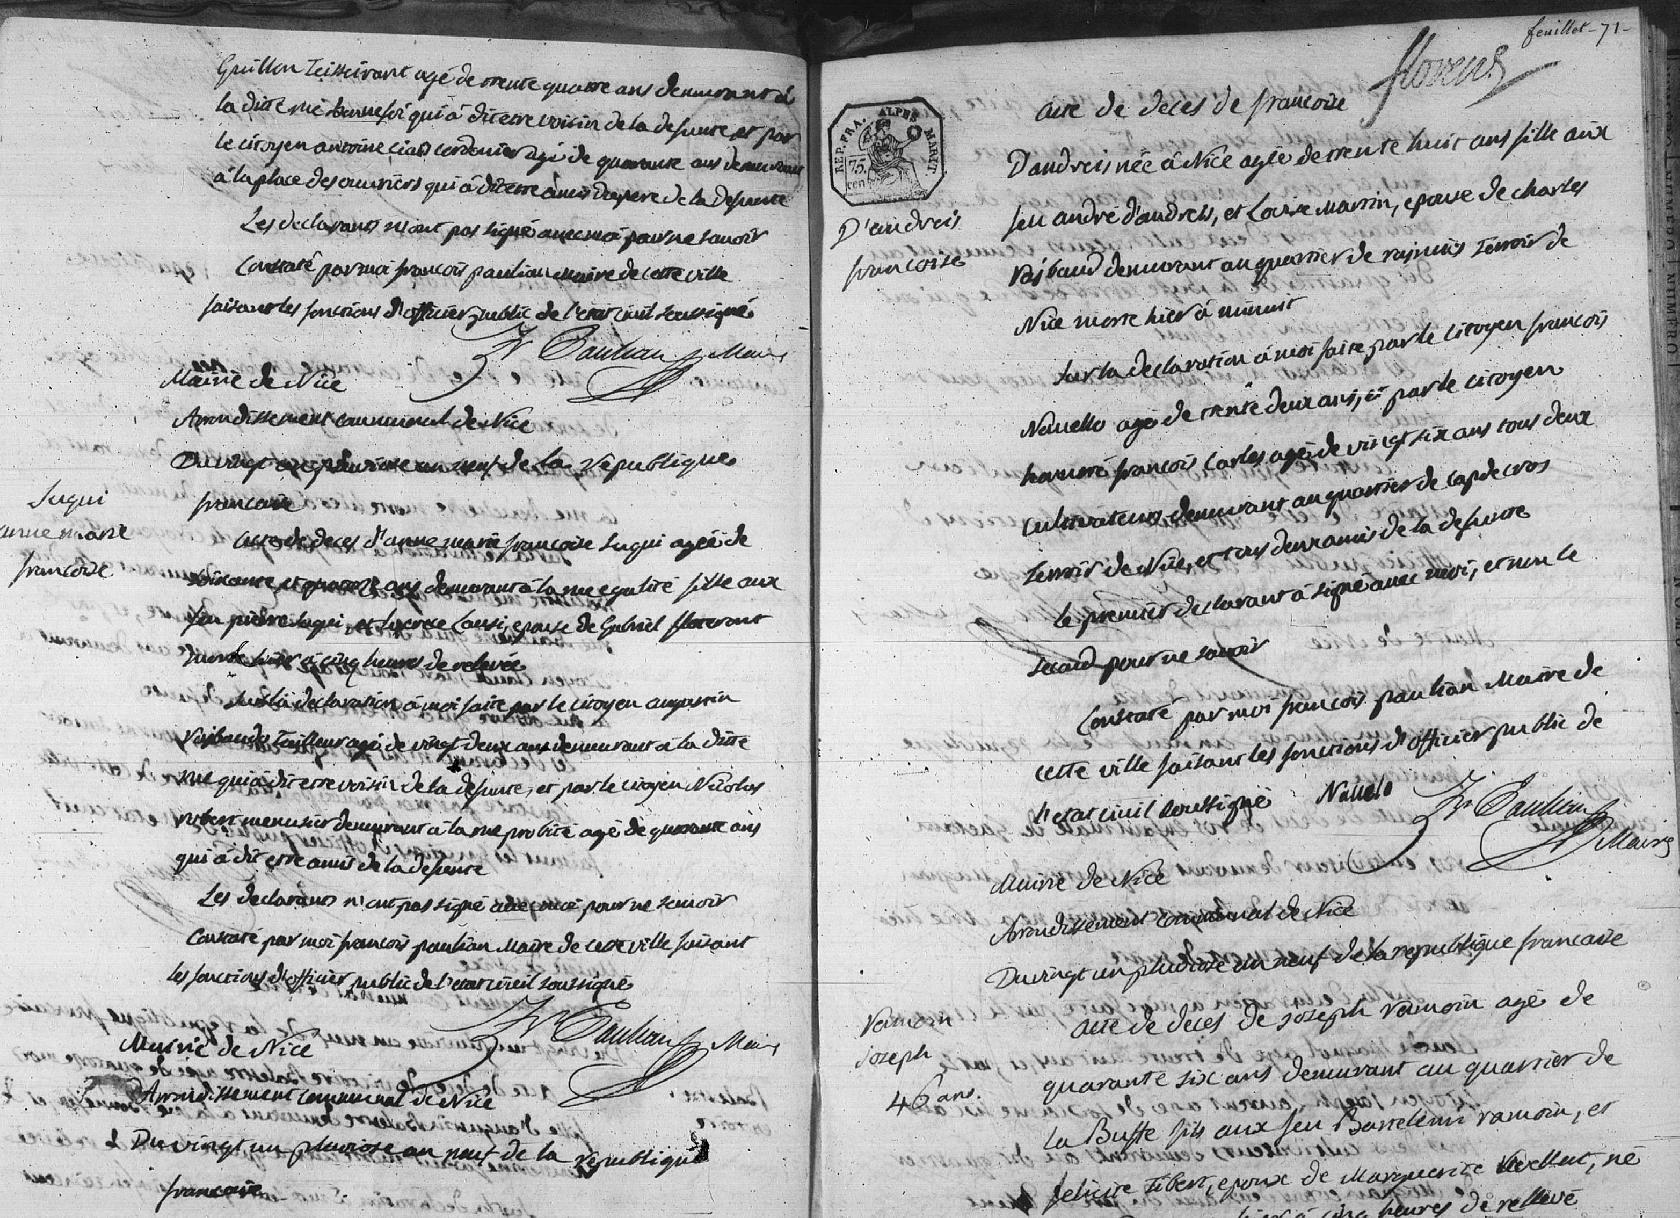 Guillon Teisseirant agé de trente quatre ans demeurant à
la ditte rue bonnefoi qui à dit etre voisin de la defunte et par
le citoyen antoine cordonier agé de quarante ans demeurant
à la place des ouvriers qui à dit etre amis du pere de la defunte
Les declarants n'ont pas signé avec moi pour ne savoir
Constaté par moi françois paulian Maire de cette ville
faisant les fonctions d'officier public de l'etat civil soussigné
fr Paulian Maire
Mairie de Nice
Arrondissement communal de Nice
Du vingt un pluviose an neuf de la republique
francaise
Sugui
anne marie
francoise
acte de deces d'anne marie francoise Sugui agée de
soixante et quatorze ans demeurant à la rue egalité fille aux
feu pierre Sugui, et Lucrece Causi, epouse de Gabriel floteront
morte hier à cinq heures de relevée
Sur la declaration à moi faite par le citoyen augustin
Raibaudi Tailleur agé de vingt deux ans demeurant à la ditte
rue qui à dit etre voisin de la defunte, et par le citoyen Nicolas
robert menusier demeurant à la rue probité agé de quarante ans
qui à dit etre amis de la defunte
Les declarants n'ont pas signé avec moi pour ne savoir
Constaté par moi françois paulian Maire de cette ville faisant
les fonctions d'officier public de l'etat civil soussigné
fr Paulian Maire
Mairie de Nice
Arrondissement communal de Nice
Du vingt un pluviose an neuf de la republique
francaise
feuillet - 71 -
florens
REP. FRA. ALPES MARIT.
75 cen
acte de deces de francoise
D'andreis
francoise
Dandreis née à Nice agée de trente huit ans fille aux
feu andré d'andreis, et Louise Marin, epouse de charles
Raibaud demeurant au quartier de rajmis terroir de
Nice morte hier à minuit
Sur la declaration à moi faite par le citoyen françois
Naucello agé de trente deux ans, et par le citoyen
honnoré françois Carles agé de vingt six ans tous deux
cultivateurs demeurant au quartier de capdecros
terroir de Nice, et tous deux amis de la defunte
le premier declarant à signé avec moi, et non le
second pour ne savoir
Constaté par moi françois paulian Maire de
cette ville faisant les fonctions d'officier public de
l'etat civil soussigné
fr Paulian Maire
Mairie de Nice
Arrondissement communal de Nice
Du vingt un pluviose an neuf de la republique francaise
Ramoin
joseph
46 ans.
acte de deces de joseph ramoin agé de
quarante six ans demeurant au quartier de
La Buffe fils aux feu Bartelemi ramoin, et
felicité Tibert, epoux de Marguerite né
hier à cinq heures de rellevé